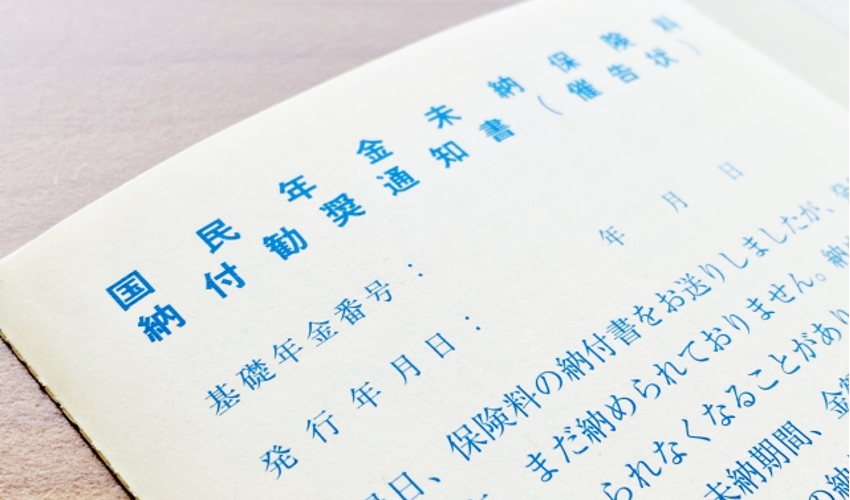 国民年金未納保険料
納付勧奨通知書(催告状)
基礎年金番号:
発行年月日: 年 月 日
日、保険料の納付書をお送りしましたが、
まだ納められておりません。納
られなくなることがあり
未納期間、金額